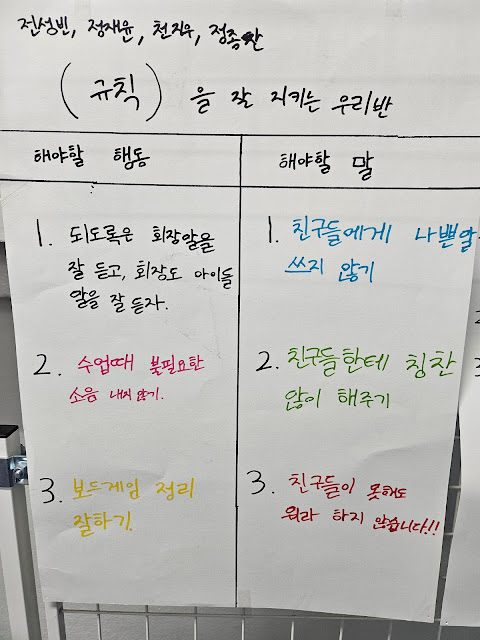 전성빈, 정재윤, 천지우, 정종찬
( 규칙 ) 을 잘 지키는 우리반
해야할 행동
1. 되도록은 회장말을
잘 듣고, 회장도 아이들
말을 잘 듣자.
2. 수업때 불필요한
소음 내지 않기.
3. 보드게임 정리
잘하기.
해야할 말
1. 친구들에게 나쁜말
쓰지 않기
2. 친구들한테 칭찬
많이 해주기
3. 친구들이 못해도
뭐라 하지 않습니다!!